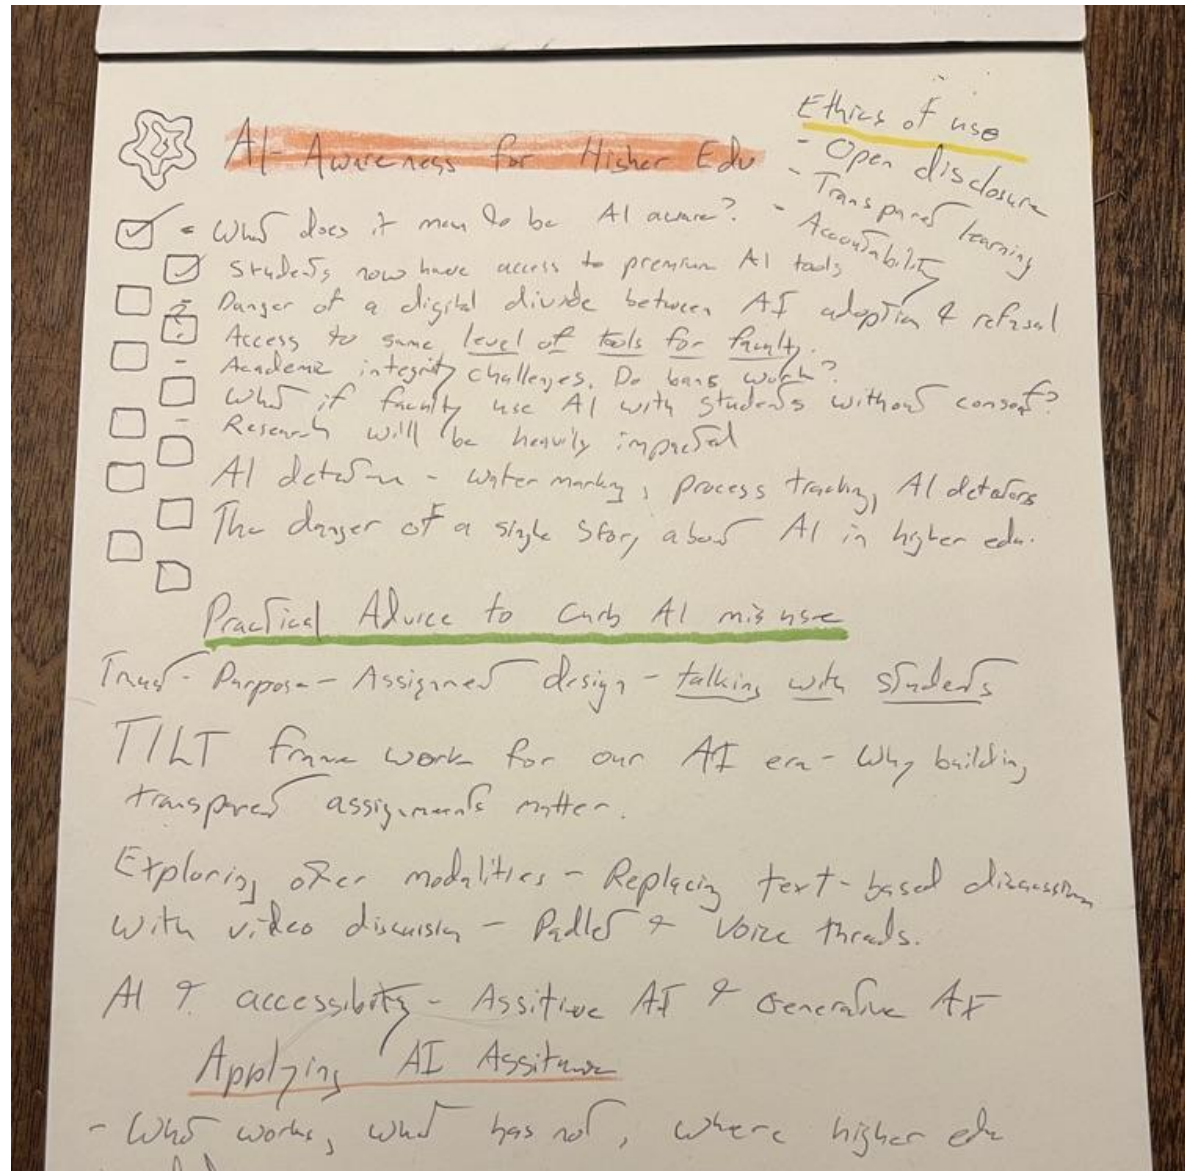 AI-Awareness for Higher Edu
Ethics of use
- Open disclosure
- Transparent learning
- Accountability
- What does it mean to be AI aware?
Students now have access to premium AI tools
- Danger of a digital divide between AI adoption & refusal
Access to same level of tools for faculty.
- Academic integrity challenges. Do bans work?
What if faculty use AI with students without consent?
- Research will be heavily impacted
AI detection - water marking, process tracking, AI detectors
The danger of a single story about AI in higher edu.
Practical Advice to Curb AI misuse
Trust - Purpose - Assignment design - talking with students
TILT frame work for our AI era - Why building
transparent assignments matter.
Exploring other modalities - Replacing text-based discussion
with video discussion - Padlet & Voice threads.
AI & accessibility - Assitive AI & Generative AI
Applying AI Assitance
- What works, what has not, where higher edu